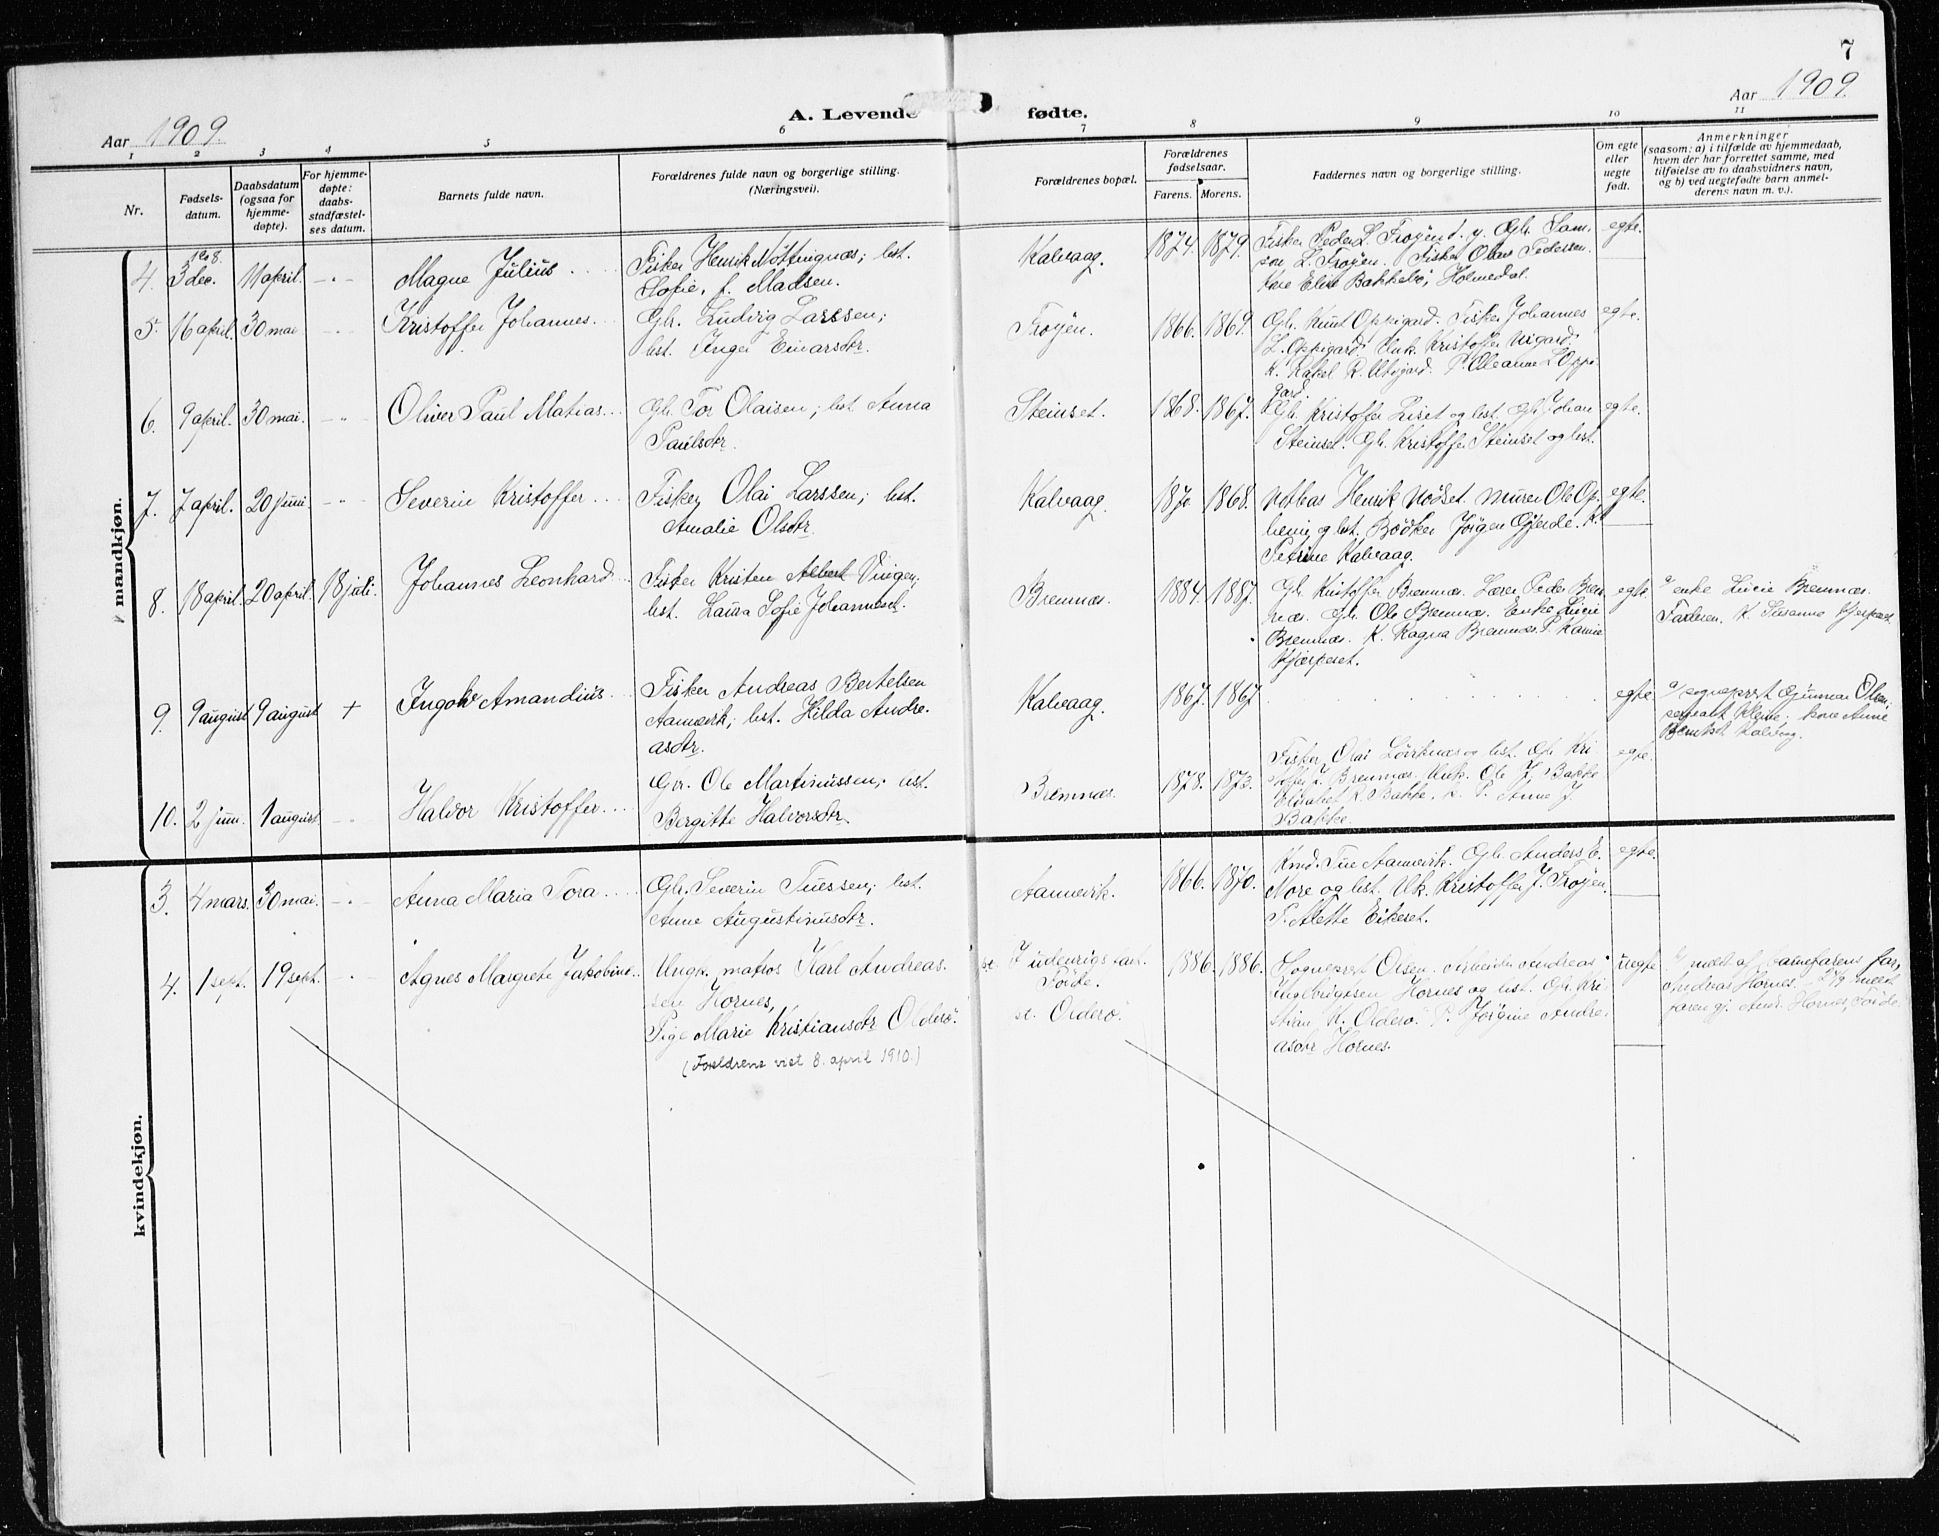 7
Aar 1909.
A. Levende fødte.
Aar 1909
1 2 3 4 5 6 7 8 9 10 11
Nr.
Fødsels-
datum.
Daabsdatum
(ogsaa for
hjemme-
døpte).
For hjemme-
døpte:
daabs-
stadfæstel-
ses datum.
Barnets fulde navn.
Forældrenes fulde navn og borgerlige stilling.
(Næringsvei).
Forældrenes bopæl.
Forældrenes
fødselsaar.
Farens. Morens.
Faddernes navn og borgerlige stilling.
Om egte
eller
uegte
født.
Anmerkninger
(saasom: a) i tilfælde av hjemmedaab,
hvem der har forrettet samme, med
tilføielse av to daabsvidners navn,
og b) ved uegtefødte barn anmel-
derens navn m. v.).
mandkjøn.
4. 1908. 3 dec. 11 april. - " - Magne Julius
Fisker Henrik Nøttingnæs; hst.
Sofie, f. Madsen.
Kalvaag. 1874. 1879.
Fisker Peder L. Frøyen d. y. Gbr. Sam-
son L. Frøyen. Fisker Olav Pedersen.
Kone Elise Bakkebø, Holmedal.
egte.
5. 16 april. 30 mai - " - Kristoffer Johannes
Gbr. Ludvig Larssen;
hst. Inger Einarsdtr.
Frøyen. 1866. 1869.
Gbr. Knut Oppigard. Fisker Johannes
L. Oppigard. Unk. Kristoffer Nigard.
K. Rakel R. Utigard. P. Oleanne L. Oppi-
gard.
egte.
6. 9 april. 30 mai. - " - Oliver Paul Matias
Gbr. Tor Olaisen; hst. Anna
Paulsdtr.
Steinset. 1868. 1867.
Gbr. Kristoffer Liset og hst. Gbr. Johan
Steinset. Gbr. Kristoffer Steinset og hst.
egte.
7. 7 april. 20 juni - " - Severin Kristoffer
Fisker Olai Larssen; hst.
Amalie Olsdtr.
Kalvaag. 1870 1868.
Notbas Henrik Nødset. Murer Ole Op-
heim og hst. Bødker Jørgen Gjerde. K.
Petrine Kalvaag.
egte.
8. 18 april. 20 april. 18 juli. Johannes Leonhard
Fisker Kristen Albert Vingen;
hst. Laura Sofie Johannesd.
Bremnæs. 1884. 1887.
Gbr. Kristoffer Bremnæs. Lærer Peder Brem-
næs. Gbr. Ole Bremnæs. Enke Lucie
Bremnæs. K. Ragna Bremnæs. P. Kamie
Hjørpeset.
egte.
a/ enke Lucie Bremnæs.
Faderen. K. Susanne Hjørpeset
9. 9 august 9 august + Ingolv Amandius
Fisker Andreas Bertelsen
Aamevik; hst. Hilda Andre-
asdtr.
Kalvaag. 1867. 1867
egte
a/ sogneprest Gunnar Olsen;
kone Anne
Kalvaag.
10. 2 juni. 1 august - " - Halvor Kristoffer
Gbr. Ole Martinussen; hst.
Bergitte Halvorsdtr.
Bremnæs. 1878. 1873.
Fisker Olai Lørknæs og hst. Gbr. Kri-
stoffer J. Bremnæs. Unk. Ole J. Bakke
Elisabet R. Bakke. P. Anne J.
Bakke.
egte.
kvindekjøn.
3. 4 mars. 30 mai. - " - Anna Maria Tora
Gbr. Severin Tuessen; hst.
Anne Augustinusdtr.
Aamevik. 1866. 1870.
Kmd. Tue Aamevik. Gbr. Anders E.
Nore og hst. Uk. Kristoffer J. Frøyen.
P. Alette Eikeset.
egte.
4. 1 sept. 19 sept. - " - Agnes Margrete Jakobine
Ungk. matros Karl Andreas-
sen Hornes,
Pige Marie Kristiansdtr Olderø.
(Foreldrene viet 8. april 1910.)
st. I udenrigs fart.
Førde.
st. Olderø. 1886. 1886.
Sogneprest Olsen. Arbeider Andreas
Ingebrigtsen Hornes og hst. Gbr. Kri-
stian K. Olderø. P. Jørgine Andre-
asdtr Hornes.
uegte
b/ meldt af barnefarens far,
Andreas Hornes. 24/9 meldt
faren gj. And. Hornes, Førde.